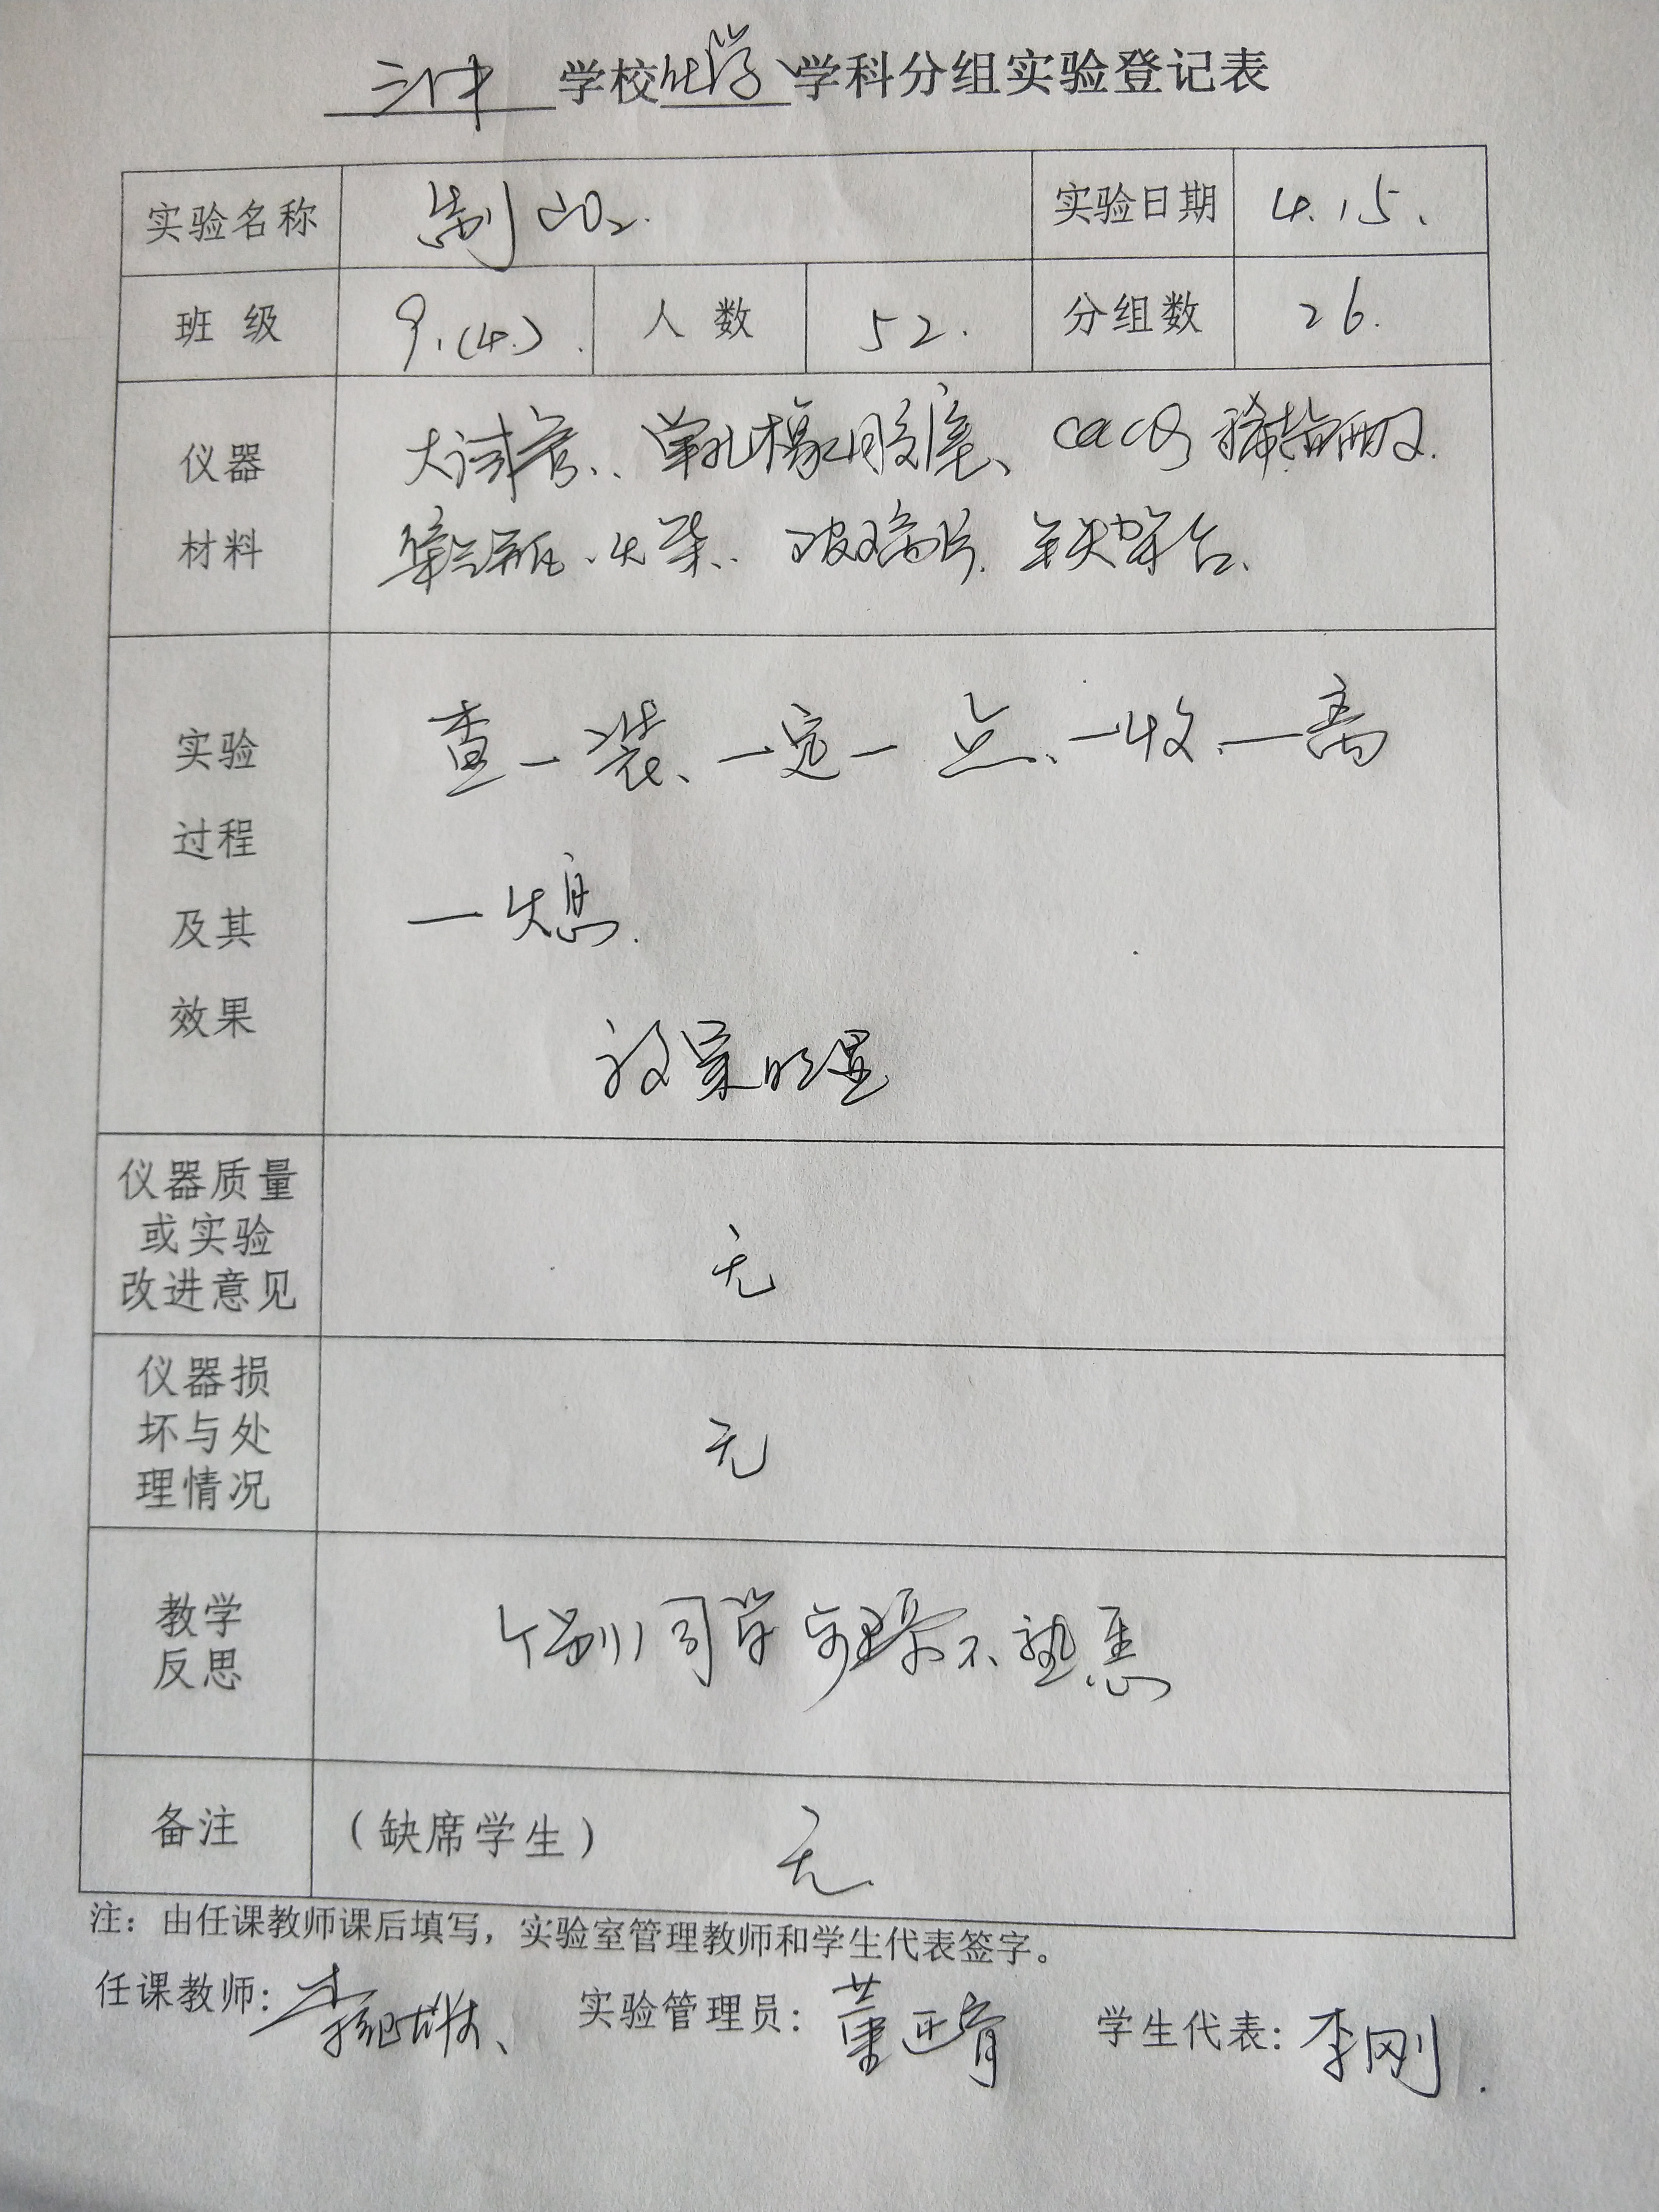 三中 学校 化学 学科分组实验登记表
实验名称 制CO₂. 实验日期 4.15.
班级 9.(4.). 人数 52. 分组数 26.
仪器 大试管、单孔橡胶塞、CaCO₃ 稀盐酸.
材料 集气瓶、火柴、玻璃片. 铁架台、
实验 查一装、一定一点、一收、一离
过程
及其 一熄.
效果 效果明显
仪器质量
或实验 无
改进意见
仪器损
坏与处 无
理情况
教学 个别同学步骤不熟悉
反思
备注 (缺席学生) 无
注：由任课教师课后填写，实验室管理教师和学生代表签字。
任课教师: 实验管理员: 董 学生代表: 李刚.